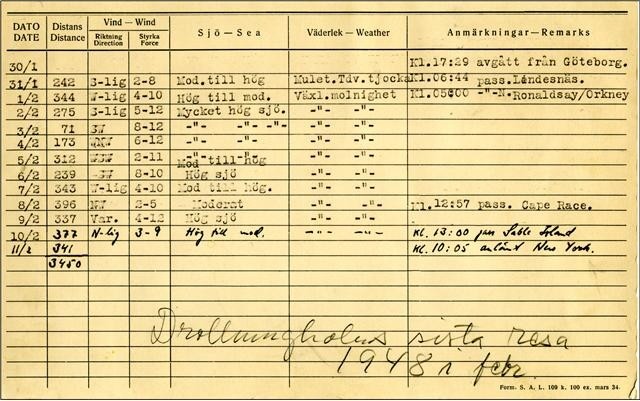 DATO DATE Distans Distance Vind — Wind Riktning Direction Styrka Force Sjö — Sea Väderlek — Weather Anmärkningar — Remarks
30/1 Kl.17:29 avgått från Göteborg.
31/1 242 S-lig 2-8 Mod.till hög Mulet.Tdv.tjocka Kl.06:44 pass. Lindesnäs.
1/2 344 W-lig 4-10 Hög till mod. Växl.molnighet Kl.05:00 -"-N.Ronaldsay/Orkney
2/2 275 S-lig 5-12 Mycket hög sjö. -"- -"-
3/2 71 SW 8-12 -"- -"- -"- -"- -"-
4/2 173 6-12 -"- -"- -"- -"-
5/2 312 WSW 2-11 Mod till hög -"- -"-
6/2 239 8-10 Hög sjö -"- -"-
7/2 343 W-lig 4-10 Mod till hög. -"- -"-
8/2 396 NW 2-5 Moderat -"- -"- Kl.12:57 pass. Cape Race.
9/2 337 Var. 4-12 Hög sjö -"- -"-
10/2 377 N-lig 3-9 Hög till mod. -"- -"- Kl. 13:00 pass Sable Island
11/2 341 Kl. 10:05 anlänt New York.
3450
Drottningholms sista resa
1948 i febr.
Form. S. A. L. 109 k. 100 ex. mars 34.